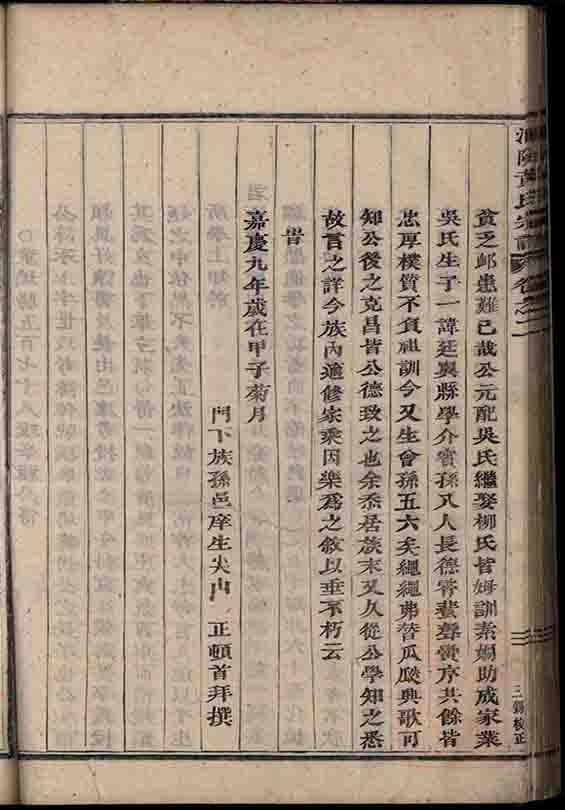 黃氏宗譜 卷之二
貧乏邺患難已哉公元配吳氏繼娶柳氏皆姆訓素嫻助成家業
吳氏生子一諱廷與縣學介賓孫八人長德霄蜚聲黌序其餘皆
忠厚樸質不負祖訓今又生曾孫五六矣繩繩弗替瓜瓞興歌可
知公後之克昌皆公德致之也余忝居族末又久從公學知之悉
故言之詳今族內適修家乘因樂爲之敘以垂不朽云
旹
嘉慶九年歲在甲子菊月
門下族孫邑庠生尖山 正頓首拜撰
校正